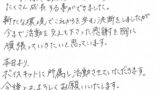 たくさん成長する事ができました。
新たな環境でこれからを歩む決断をしましたが
今まで活動を支えて下さった感謝を胸に
頑張っていきたいと思います。
本日より、
ボイスキットに所属し活動させていただきます。
今後ともよろしくお願いいたします。